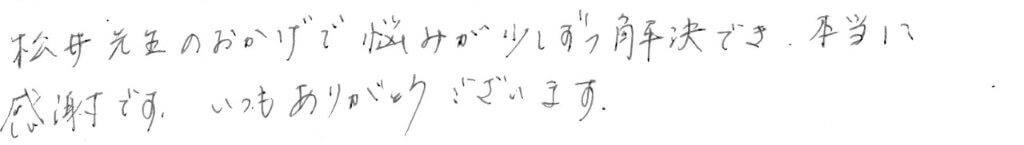 松井先生のおかげで悩みが少しずつ解決でき、本当に
感謝です。いつもありがとうございます。